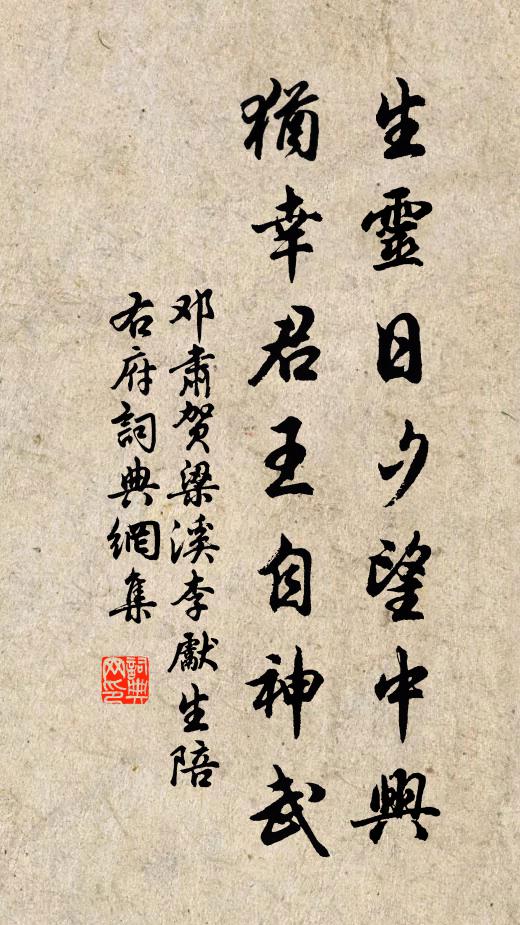 生靈日夕望中興
猶幸君王自神武
邓肅贺梁溪李獻生陪
右府詞典網集
詞典网印